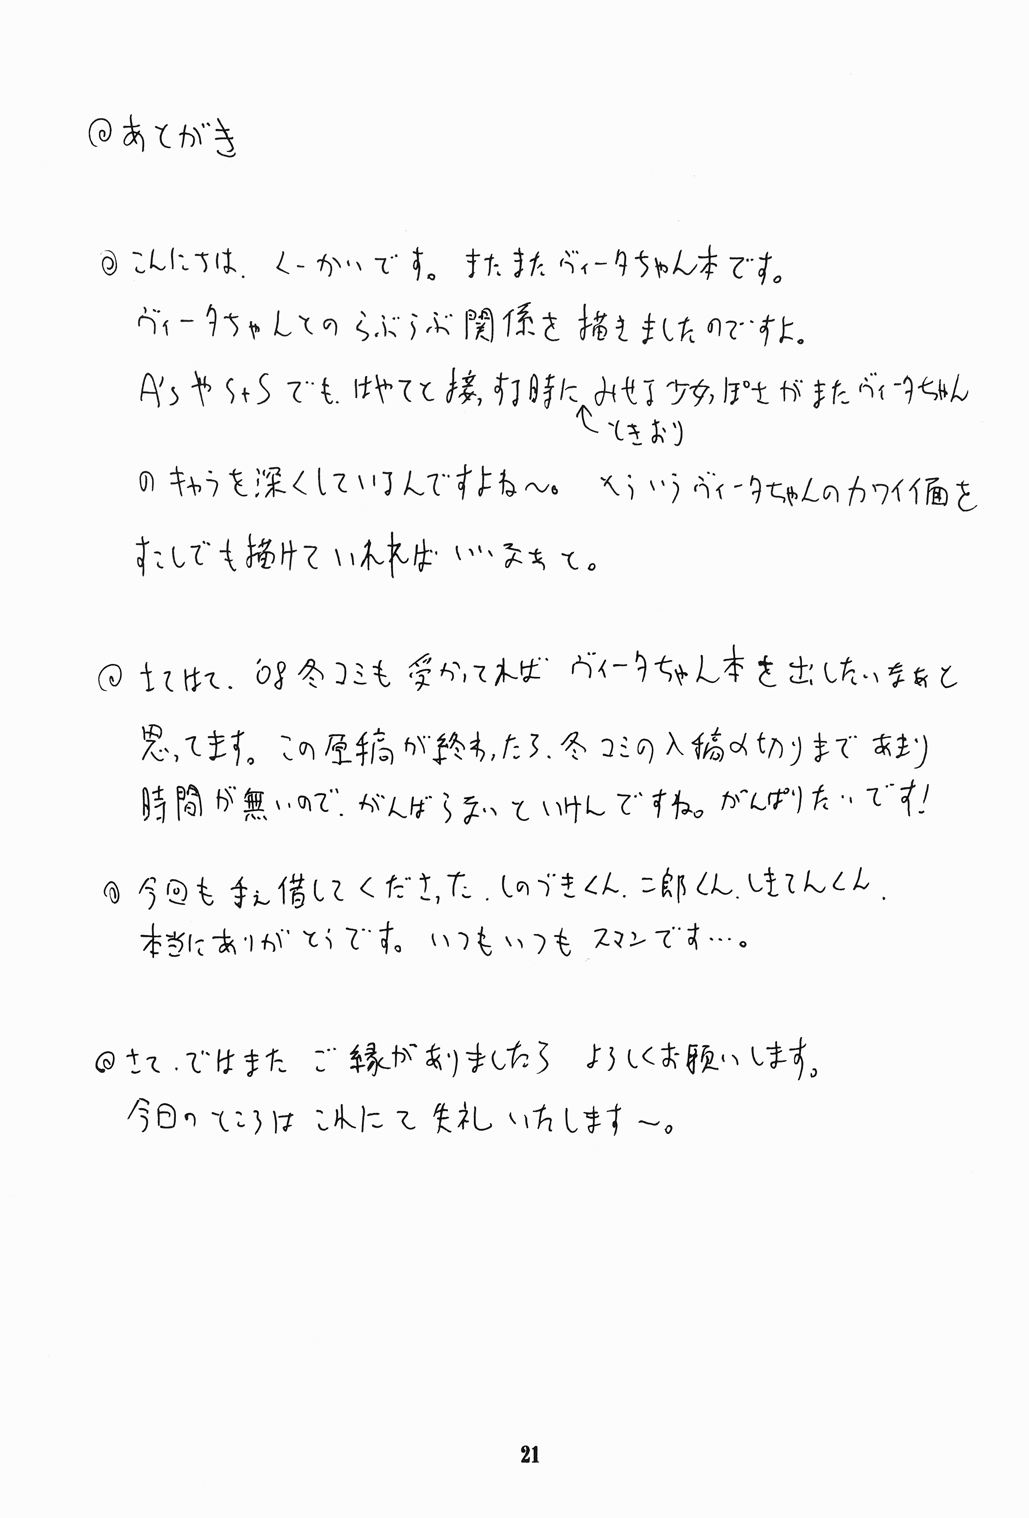 あとがき
こんにちは、くーかいです。またまたヴィータちゃん本です。
ヴィータちゃんとのらぶらぶ関係を描きましたのですよ。
A'sやStSでも、はやてと接っする時に みせる少女っぽさがまたヴィータちゃん
ときおり
のキャラを深くしているんですよね〜。 そういうヴィータちゃんのカワイイ面を
すこしでも描けていれればいいなぁと。
さてはて、'08冬コミも受かってれば ヴィータちゃん本を出したいなぁと
思ってます。この原稿が終わったら、冬コミの入稿〆切りまであまり
時間が無いので、がんばらないといけんですね。がんばりたいです!
今回も手ぇ借してくださった、しのづきくん、二郎くん、しきてんくん、
本当にありがとうです。いつもいつもスマンです…。
さて、ではまた ご縁がありましたら よろしくお願いします。
今日のところは これにて 失礼いたします〜。
21